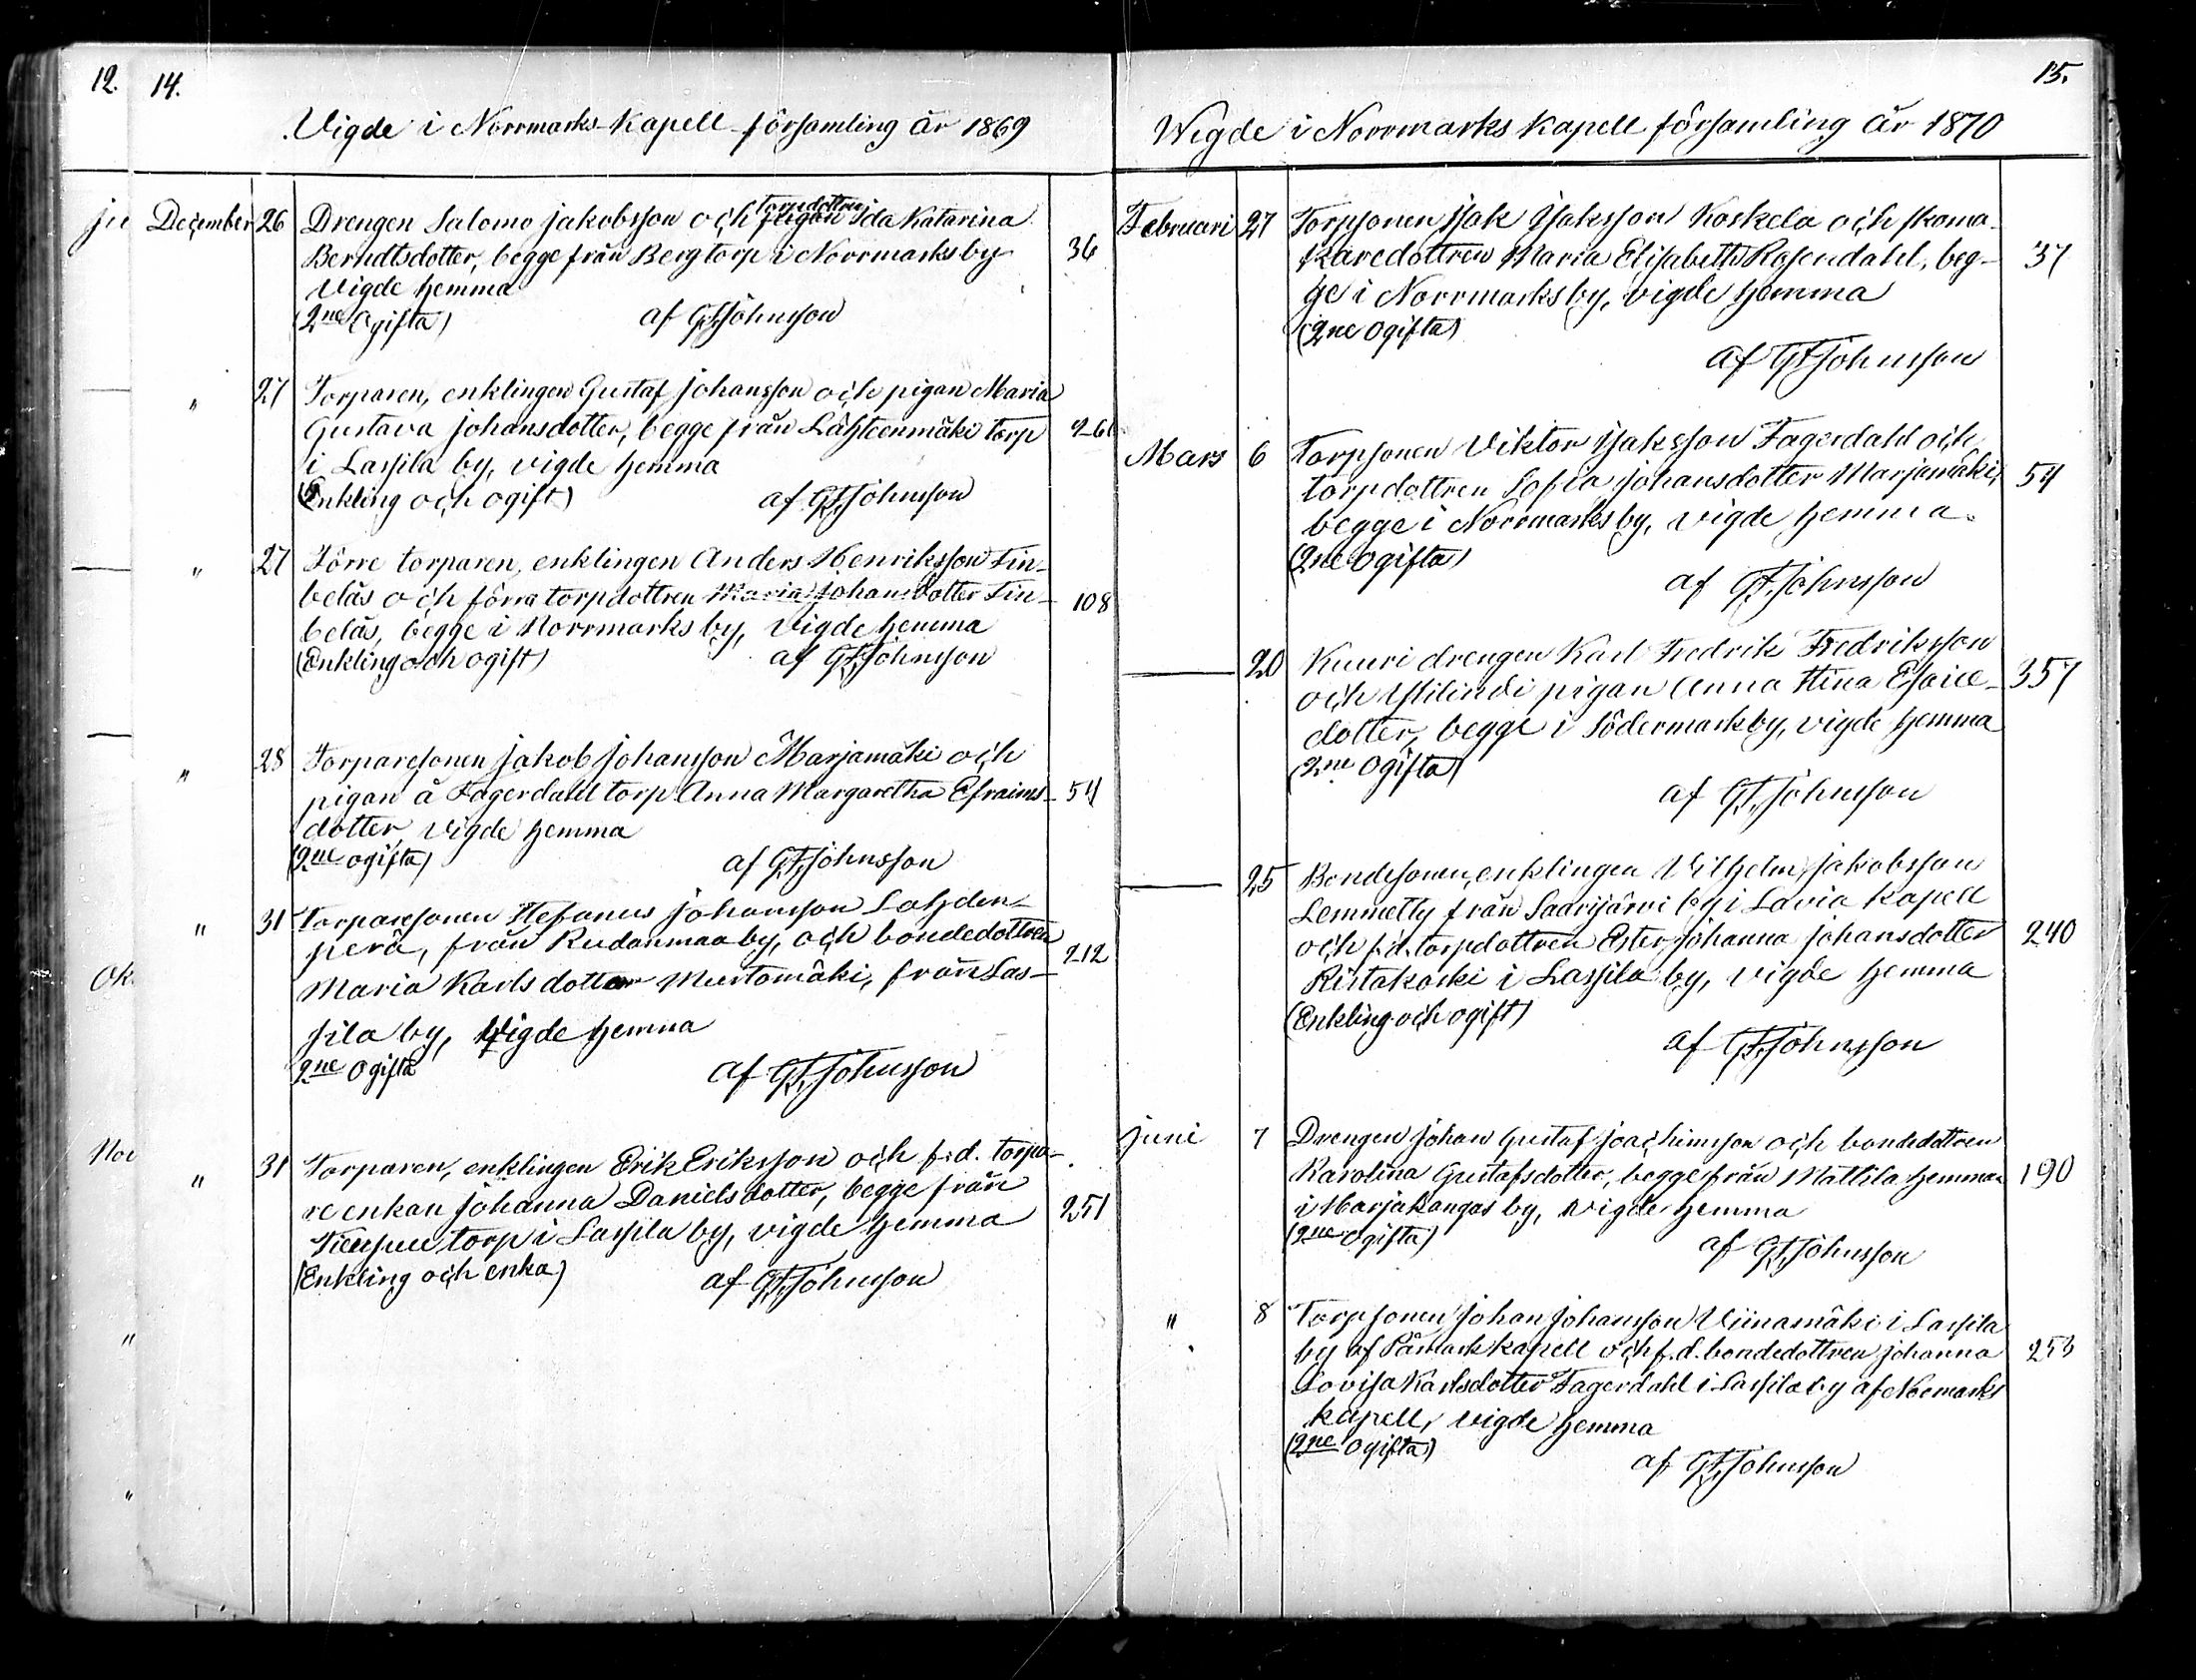 12. 14.
Vigde i Norrmarks Kapell församling år 1869
December 26 Drengen Salomo Jakobsson och torpdottren Ida Katarina
Berndtsdotter, begge från Bergtorp i Norrmarks by 36
Vigde hemma
(2ne Ogifta) af G.F. Johnsson
" 27 Torparen, enklingen Gustaf Johansson och pigan Maria
Gustava Johansdotter, begge från Lähteenmäki torp
i Lassila by, vigde hemma
(Enkling och ogift) af G.F. Johnsson
" 27 Förre torparen, enklingen Anders Henriksson Fin-
belås och förra torpdottren Maria Johansdotter Fin- 108
belås, begge i Norrmarks by, Vigde hemma
(Enkling och ogift) af G.F. Johnsson
" 28 Torparesonen Jakob Johansson Marjamäki och
pigan å Fagerdahl torp Anna Margaretha Efraims- 54
dotter, Vigde hemma
(2ne ogifta) af G.F. Johnsson
" 31 Torparesonen Stefanus Johansson Lahden-
perä, från Rudanmaa by, och bondedottren 212
Maria Karlsdotter Murtomäki, från Las-
sila by, Vigde hemma
2ne Ogifta af G.F. Johnsson
" 31 Torparen, enklingen Erik Eriksson och f.d. torpa-
re enkan Johanna Danielsdotter, begge från 251
torp i Lassila by, vigde hemma
(Enkling och enka) af G.F. Johnsson
15.
Wigde i Norrmarks Kapell församling år 1870
Februari 27 Torpsonen Isak Isaksson Koskela och skoma-
karedottren Maria Elisabeth Rosendahl, beg- 37
ge i Norrmarks by, vigde hemma
(2ne ogifta)
af G.F. Johnsson
Mars 6 Torpsonen Viktor Isaksson Fagerdahl och
torpdottren Sofia Johansdotter Marjamäki, 54
begge i Norrmarks by, vigde hemma.
(2ne Ogifta)
af G.F. Johnsson
20 Kuuri drengen Karl Fredrik Fredriksson
och Ylilindi pigan Anna Stina Esaice- 357
dotter, begge i Södermark by, vigde hemma
(2ne Ogifta)
af G.F. Johnsson
25 Bondesonen, enklingen Vilhelm Jakobsson
Lemmetty från Saarijärvi by i Lavia Kapell
och f.d. torpdottren Ester Johanna Johansdotter 240
Ristakoski i Lassila by, vigde hemma
(Enkling och ogift)
af G.F. Johnsson
Juni 7 Drengen Johan Gustaf Joachimsson och bondedottren
Karolina Gustafsdotter, begge från Mattila hemman 190
i Harjakangas by, vigde hemma
(2ne Ogifta)
af G.F. Johnsson
" 8 Torpsonen Johan Johansson Viinamäki i Lassila
by af Påmark kapell och f.d. bondedottren Johanna 253
Lovisa Karlsdotter Fagerdahl i Lassila by af Normarks
kapell, vigde hemma
(2ne Ogifta)
af G.F. Johnsson